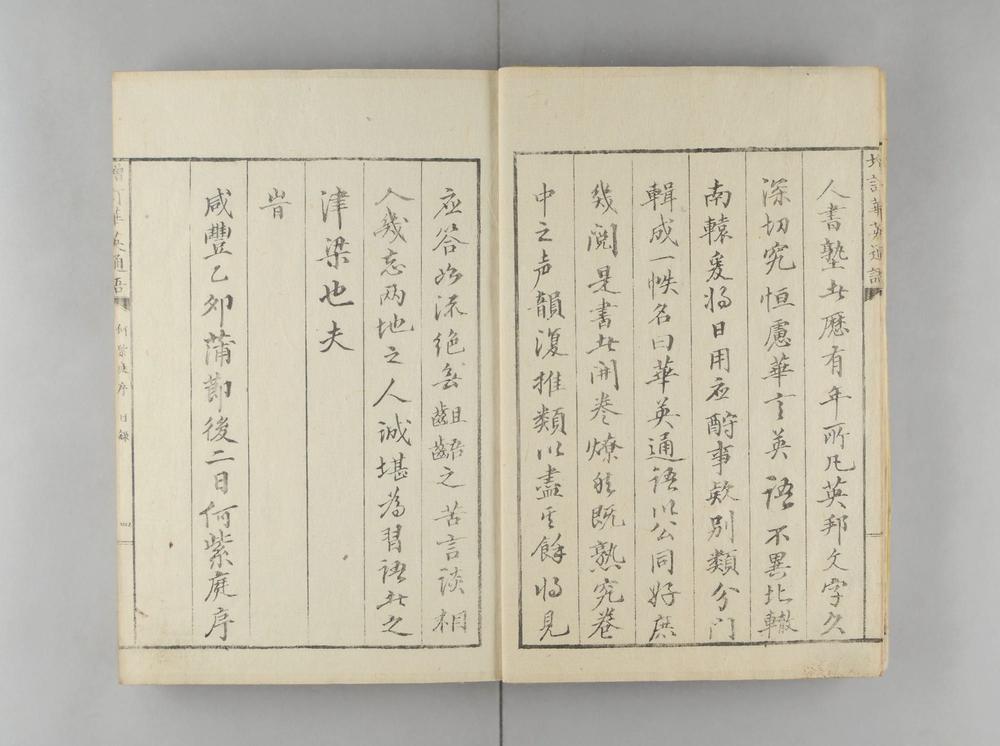 增訂華英通語
人書塾者歷有年所凡英邦文字久
深切究恒慮華言英語不異北轍
南轅爰將日用应酧事欵別類分门
輯成一帙名曰華英通語以公同好庶
幾閱是書者開卷燎然既熟究卷
中之声韻復推類以盡其餘將見
应答如流絶无齟齬之苦言談相
入幾忘兩地之人誠堪為習語者之
津梁也夫
旹
咸豐乙卯蒲節後二日何紫庭序
增訂華英通語
何紫庭序 目錄 四